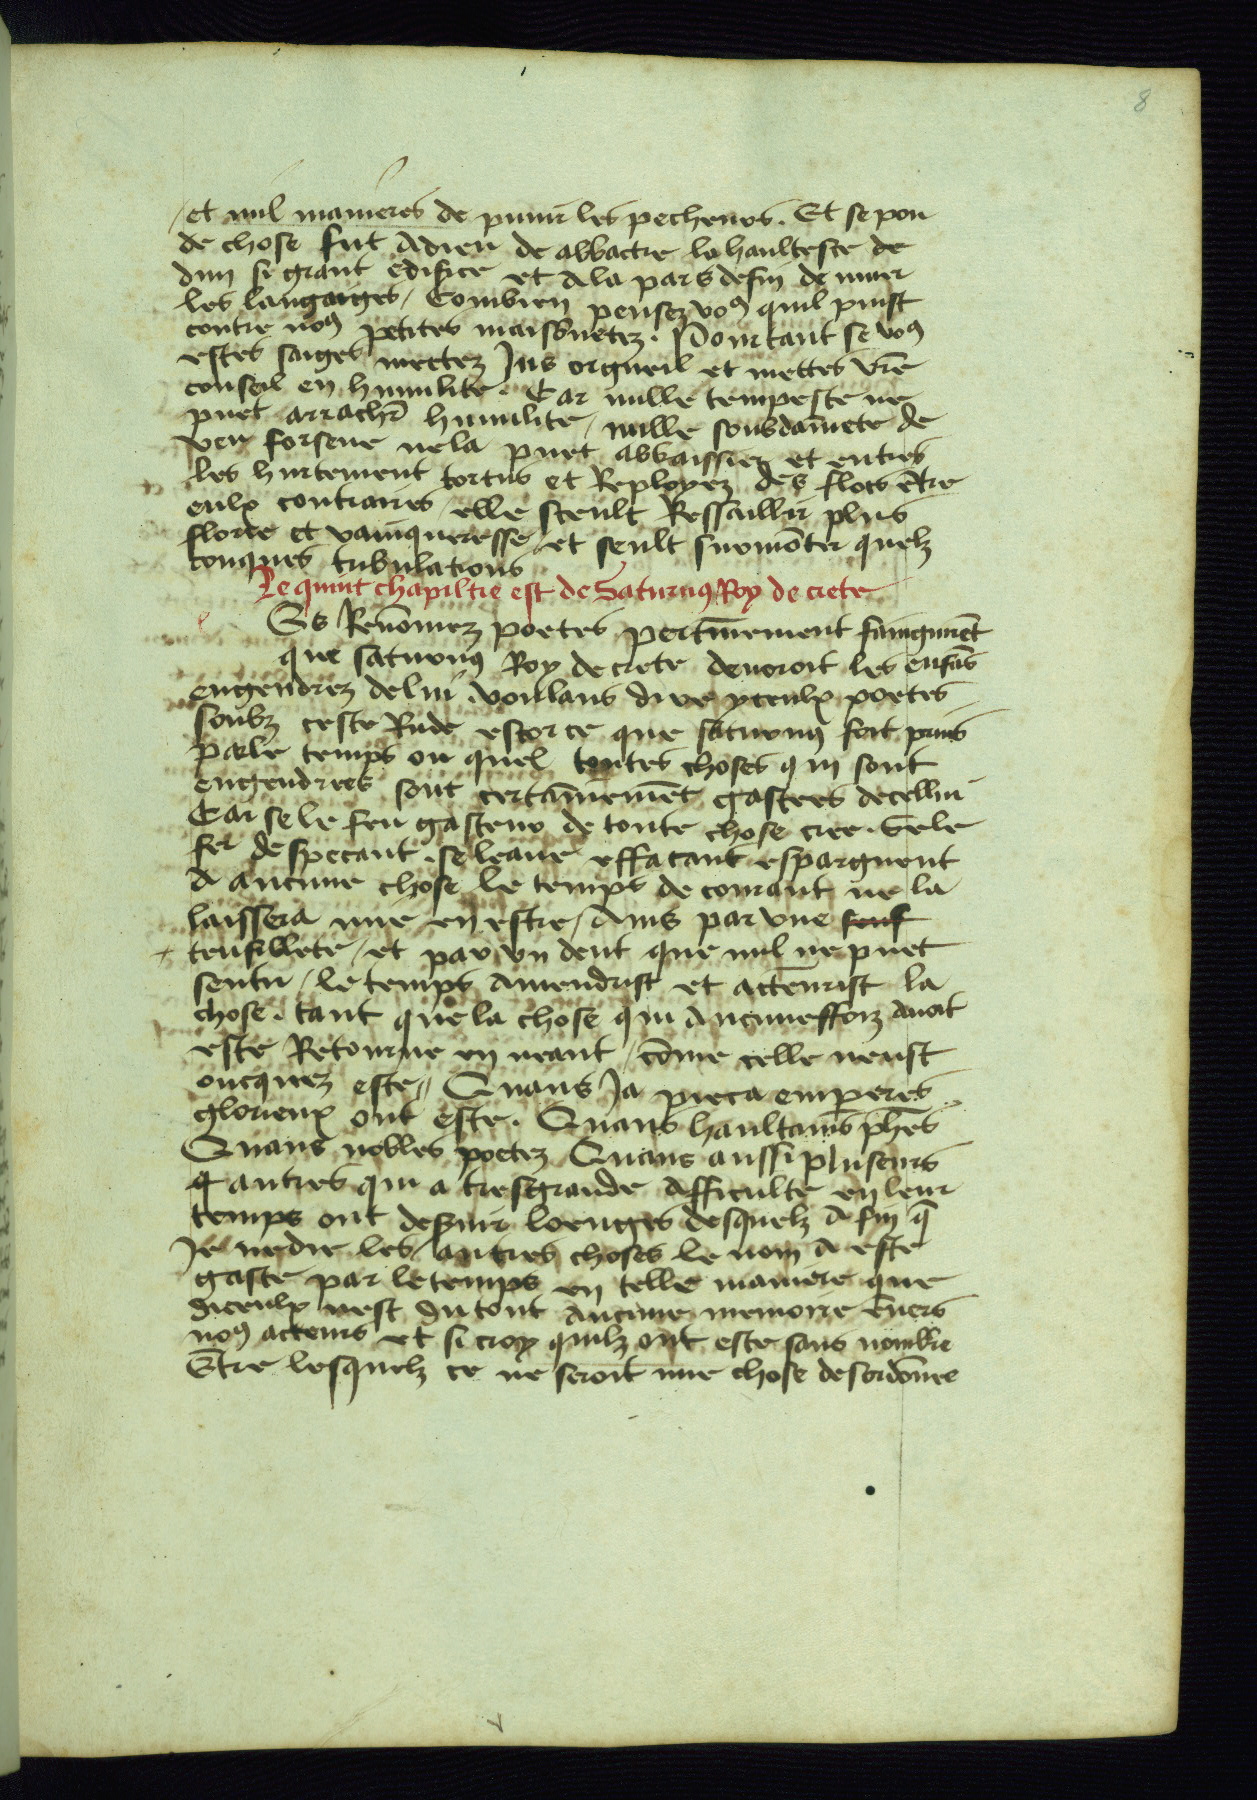 8
et mil manieres de punir les pecheurs. Et se pou
de chose fut a dieu de abbactre la haultesce de
dun si grant edifice et a la parsdefin de muer
les langaiges / Combien pensez voꝯ quil puist
contre noꝯ petites maisonnetez. Pourtant se voꝯ
estes saiges mettez Jus orgueil et mettes vr̄e
conseil en humilite. Car nulle tempeste ne
puet arrachr̄ humilite / nulle soubdainete de
ven forsene ne la puet abbaissier et entres
les hurtement tortus et Reployez des flots ētre
eulx contraires / elle seult Ressaillir plus
florie et vainqueresse / et seult surmōter quelz
conques tribulations
Le quint chapiltre est de Saturnꝯ Roy de crete
Es Renōmez poetes pertinēment faingnēt
que saturnꝯ Roy de crete devoroit les enfās
engendrez de lui . voulans dire yceulx poetes
soubz ceste Rude escorce que saturnꝯ soit prins
pour le temps ou quel toutes choses qui sont
engendrees sont certainemēt gastees de cellui
Car se le feu gasteur de toute chose cree. Se le
fer despecant. se leaue effacant espargnent
a aucune chose le temps decourant ne la
laissera mie en estre / Ains par une
teusiblete / et par un dent que nul ne puet
sentir / le temps amendrist et actenvrist la
chose. tant que la chose qui aucuneffoiz avoit
este Retourne en neant / cōme celle neust
oncquez este // Quans Ja pieca emperes
glorieux ont este. Quans haultains phēs
Quans nobles poetez Quans aussi pluseurs
autres qui a tresgrande difficulte en leur
temps ont deservir loenges desquelz a fin q̄
Je ne die les autres choses le nom a este
gaste par le temps en telle maniere que
diceulx nest du tout aucune memoire envers
noꝯ acteurs et si croy quilz ont este sans nombre
Entre lesquelz ce ne seroit mie chose desordōnee